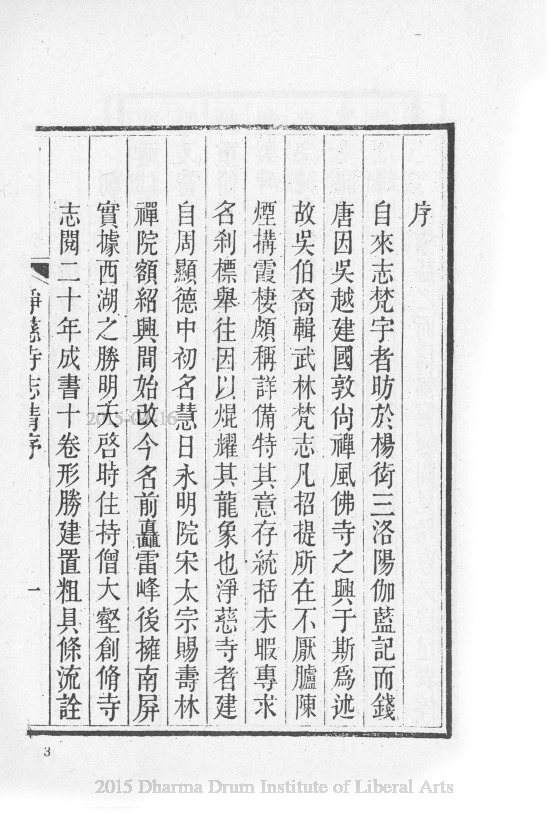 序
自來志梵宇者昉於楊衒之洛陽伽藍記而錢
唐因吳越建國敦尙禪風佛寺之興于斯爲述
故吳伯裔輯武林梵志凡招提所在不厭臚陳
煙搆霞棲頗稱詳備特其意存統括未暇專求
名刹標舉往因以焜耀其龍象也淨慈寺者建
自周顯德中初名慧日永明院宋太宗賜壽林
禪院額紹興間始改今名前矗雷峰後擁南屏
實據西湖之勝明天啓時住持僧大壑創脩寺
志閱二十年成書十卷形勝建置粗具條流詮
淨慈寺志 序
一
3
2015 Dharma Drum Institute of Liberal Arts